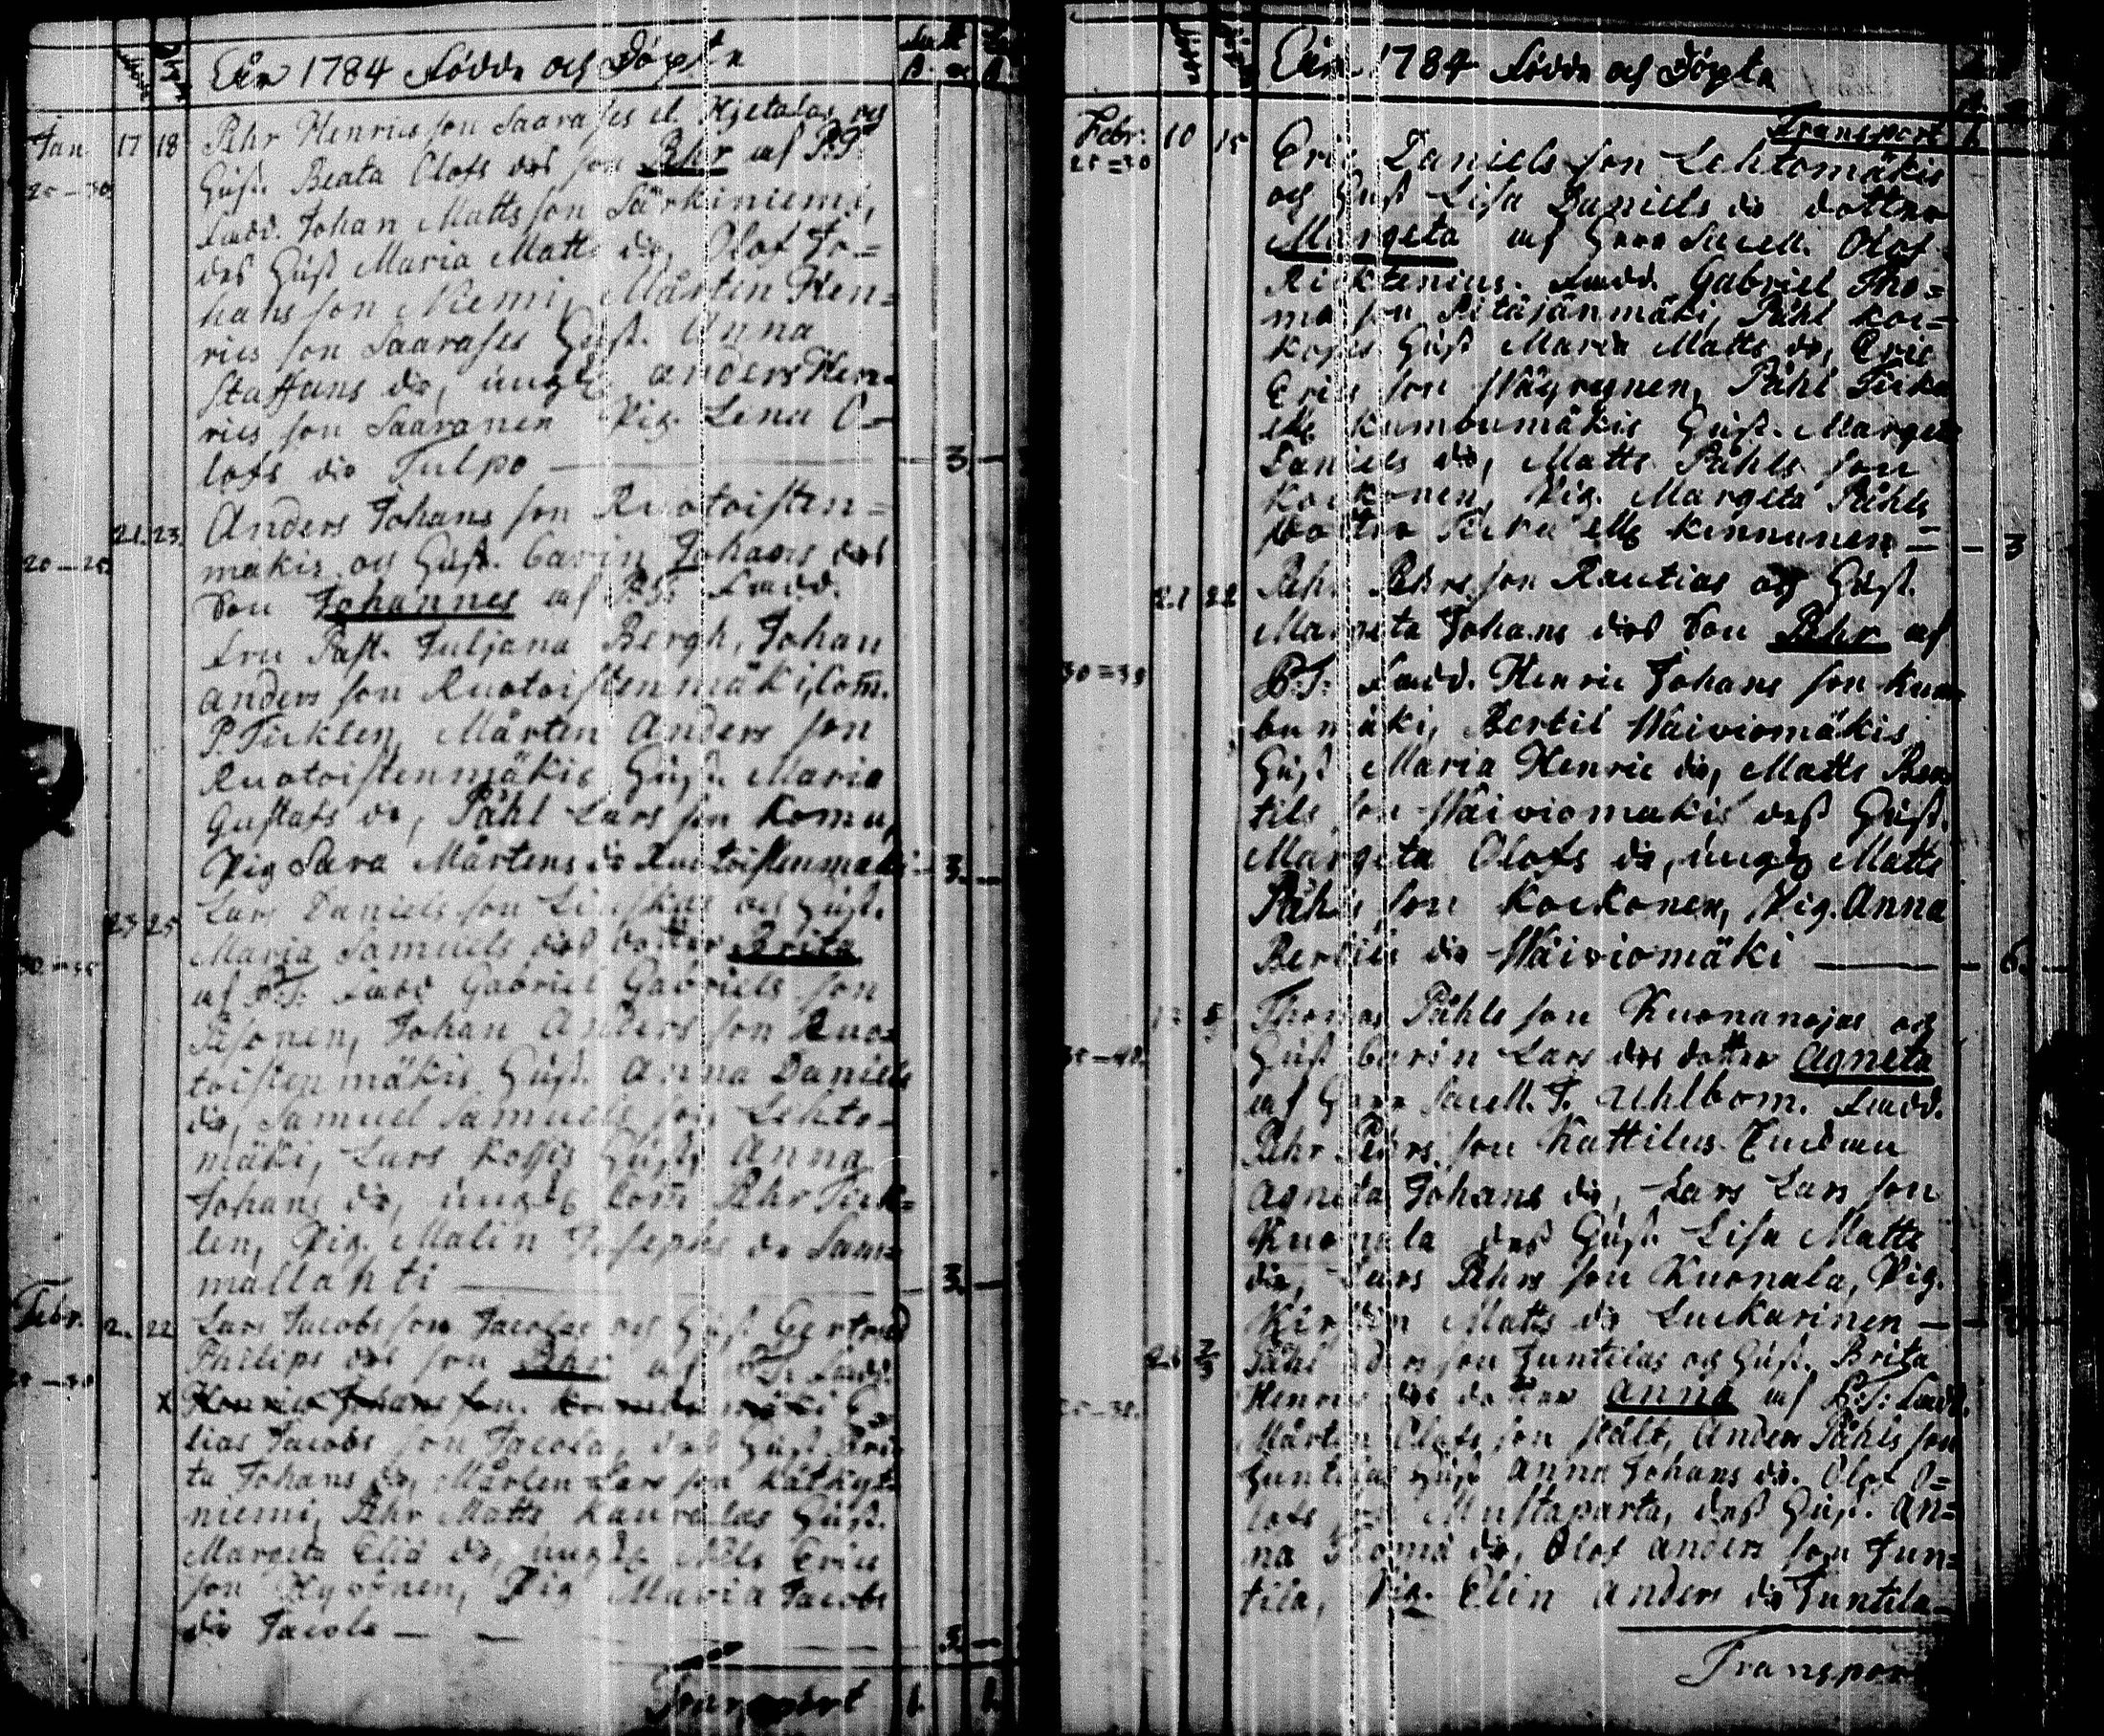 Åhr 1784 Födde och Döpte
Jan 17 18 Pehr Henrics son Saarases et Hjetalas och
25–30 Hust. Beata Olofs dos son Pehr af P:T:
Fadd. Johan Matts son Särkiniemi,
des Hust Maria Matts dr, Olof Jo=
hans son Niemi, Mårten Hen=
rics son Saarases Hust. Anna
Staffans dr, ungkg Anders Hen=
rics son Saaranen Pig. Lena O=
lofs dr Tulpo — 3 —
21. 23. Anders Johans son Ruotoisten=
20–25. mäkis och Hust. Carin Johans dos
Son Johannes af P:T: Fadd.
Fru Past. Juljana Bergh, Johan
Anders son Ruotoistenmäki, Com.
P Ticklen, Mårten Anders son
Ruotoistenmäkis Hust. Maria
Gustafs dr, Påhl Lars son Komu,
Pig Sara Mårtens dr Ruotoistenmäki – 3. —
23 25 Lars Daniels son Liuskas och Hust.
Maria Samuels dos dotter Brita
af P:T: Fadd Gabriel Gabriels son
Pesonen, Johan Anders son Ruo=
toistenmäkis Hust. Anna Daniels
dr, Samuel Samuels son Lehto=
mäki, Lars Kossis Hust, Anna
Johans dr, ungkg Com Pehr Tick=
len, Pig. Malin Josephs dr Saar=
mallahti — 3. —
Febr. 2. 22 Lars Jacobs son Jacolas och Hust Gertrud
Philips dos son Pehr af P:T: Fadd.
x Henric Johans son. mäki E=
lias Jacobs son Jacola, des Hust Bri=
ta Johans dr, Mårten Lars son Kätkyt=
niemi, Pehr Matts Kauralas Hust.
Margeta Eliæ dr, ungkg Nils Erics
son Hyvönen, Pig Maria Jacobs
dr Jacola — — 3. —
Transport
Åhr 1784 Födde och Döpte
Transport
Febr. 10 15 Eric Daniels son Lehtomäkis
25=30 och Hust Lisa Daniels dr dotter
Margeta af Herr Sacell. Olof
Ricktenius. Fadd. Gabriel Tho=
mæ son Pitäjänmäki, Påhl Koc=
kos Hust Maria Matts dr, Eric
Erics son Väyrynen, Påhl
Kumbumäkis Hust. Margeta
Daniels dr, Matts Påhls son
Kockonen, Pig. Margeta Påhls
dotter Kinnunen — – 3
21 22 Pehr Pehrs son Rautias och Hust.
Margeta Johans dos Son Pehr af
30=35 P:T: Fadd. Henric Johans son Kum=
bumäki, Bertil Wäiviomäkis
Hust Maria Henric dr, Matts Ber=
tils son Wäiviomäkis dess Hust.
Margeta Olofs dr, ungkg Matts
Påhls son Kockonen, Pig. Anna
Bertils dr Wäiviomäki — – 6. —
Thomas Påhls son Kuonanojas och
35–40. Hust Carin Lars dos dotter Agneta
af Herr Sacell. J. Uhlbom. Fadd.
Pehr Pehrs son Kattilus Enckan
Agneta Johans dr, Lars Lars son
Kuonala dess Hust. Lisa Matts
dr, Lars Pehrs son Kuonala, Pig.
Kirstin Matts dr Luckarinen —
Påhl son Juntilas och Hust. Brita
Henrics dos dotter Anna af P:T: Fadd.
Mårten Olofs son Hält, Anders Påhls son
Juntilas Hust Anna Johans dr. Olof O=
lofs son Mustaparta, dess Hust. An=
na Thomæ dr, Olof Anders son Jun=
tila, Pig. Elin Anders dr Juntila —
Transport